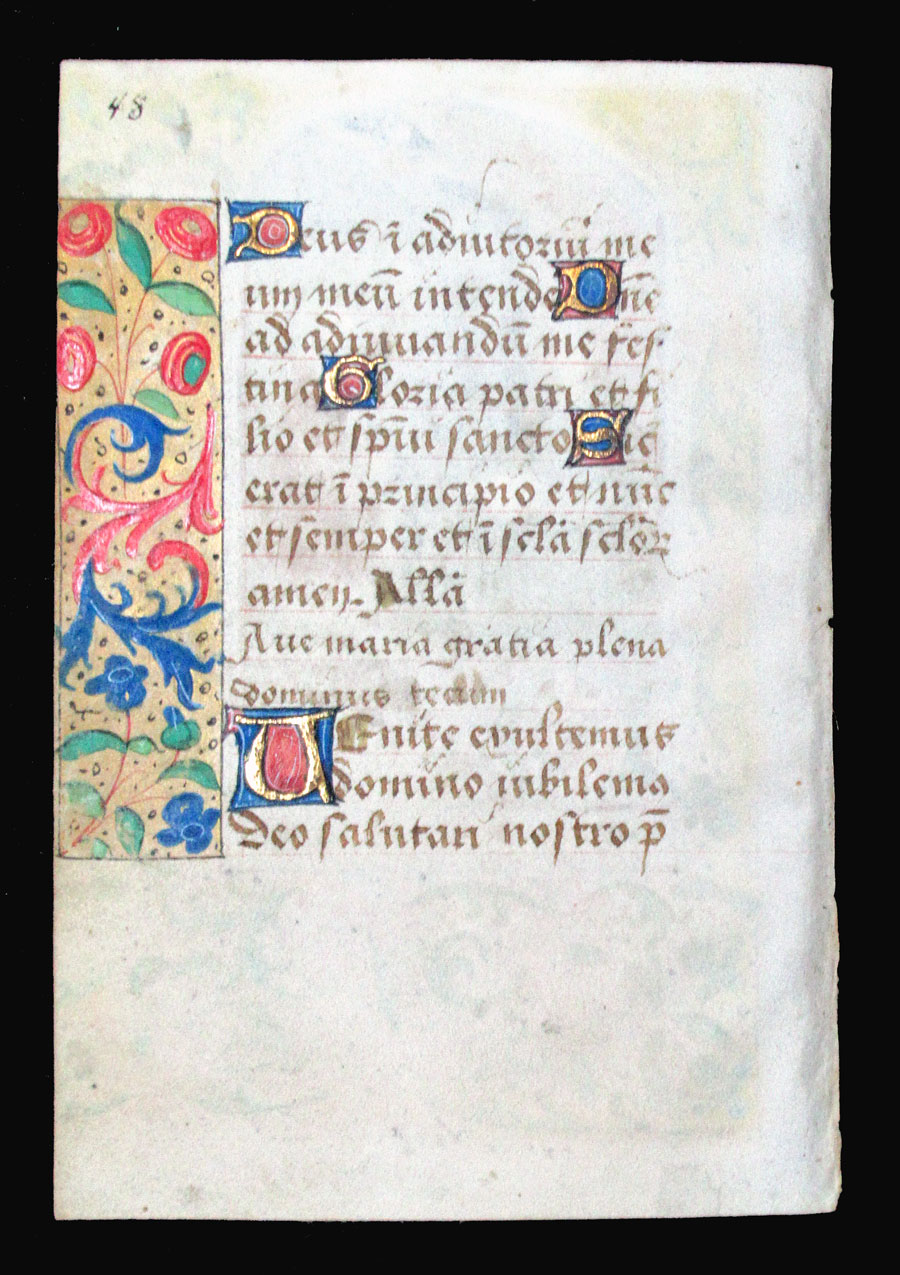 48
Deus ī adiutoriū me
um meū intende Dñe
ad adiuuandū me fes
tina Gloria patri et fi
lio et sp̄iu sancto Sic̄
erat ī principio et nūc
et semper et ī scl̄a scl̄oꝝ
amen. All̄a
Aue maria gratia plena
dominus tecum
UEnite exultemus
domino iubilemo
deo salutari nostro p̄